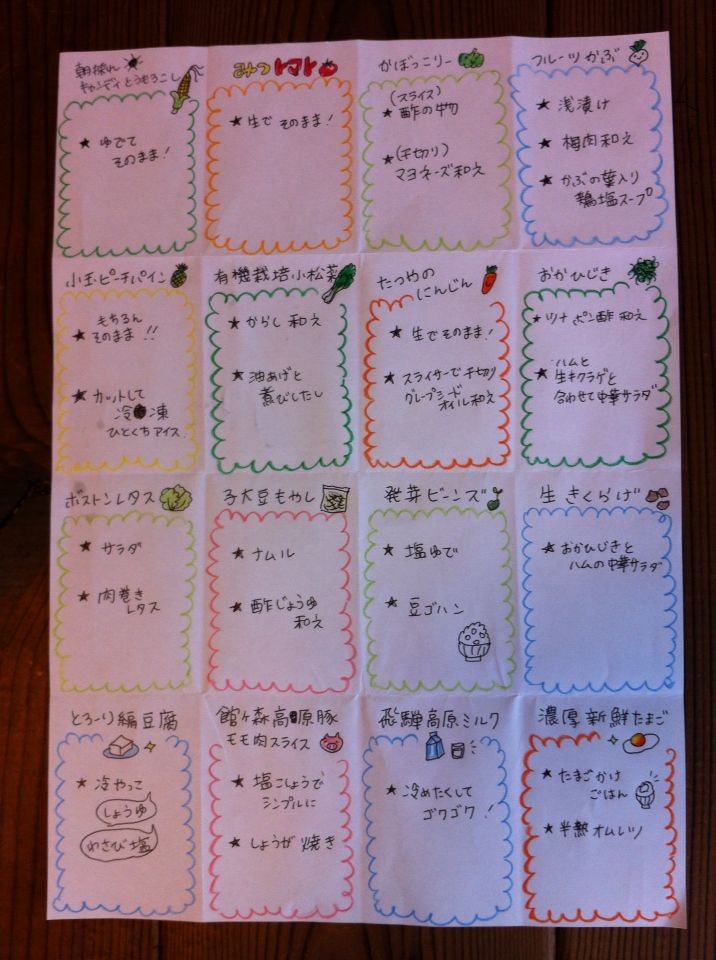 朝採れ
キャンディとうもろこし
★ ゆでて
そのまま!
みつトマト
★ 生で そのまま!
かぼっこりー
(スライス)
★ 酢の物
(千切り)
★ マヨネーズ和え
フルーツかぶ
★ 浅漬け
★ 梅肉和え
★ かぶの葉入り
鶏塩スープ
小玉ピーチパイン
もちろん
★ そのまま!!
★ カットして
冷凍
ひとくちアイス
有機栽培小松菜
★ からし和え
★ 油あげと
煮びたし
たつやの
にんじん
★ 生でそのまま!
★ スライサーで千切り
グレープシード
オイル和え
おかひじき
★ ツナ ポン酢 和え
ハムと
★ 生キクラゲと
合わせて中華サラダ
ボストンレタス
★ サラダ
★ 肉巻き
レタス
子大豆もやし
★ ナムル
★ 酢じょうゆ
和え
発芽ビーンズ
★ 塩ゆで
★ 豆ゴハン
生きくらげ
★ おかひじきと
ハムの中華サラダ
とろ〜り絹豆腐
★ 冷やって
しょうゆ
わさび塩
館ヶ森高原豚
モモ肉スライス
★ 塩こしょうで
シンプルに
★ しょうが焼き
飛騨高原ミルク
★ 冷めたくして
ゴクゴク!
濃厚新鮮たまご
★ たまごかけ
ごはん
★ 半熟オムレツ